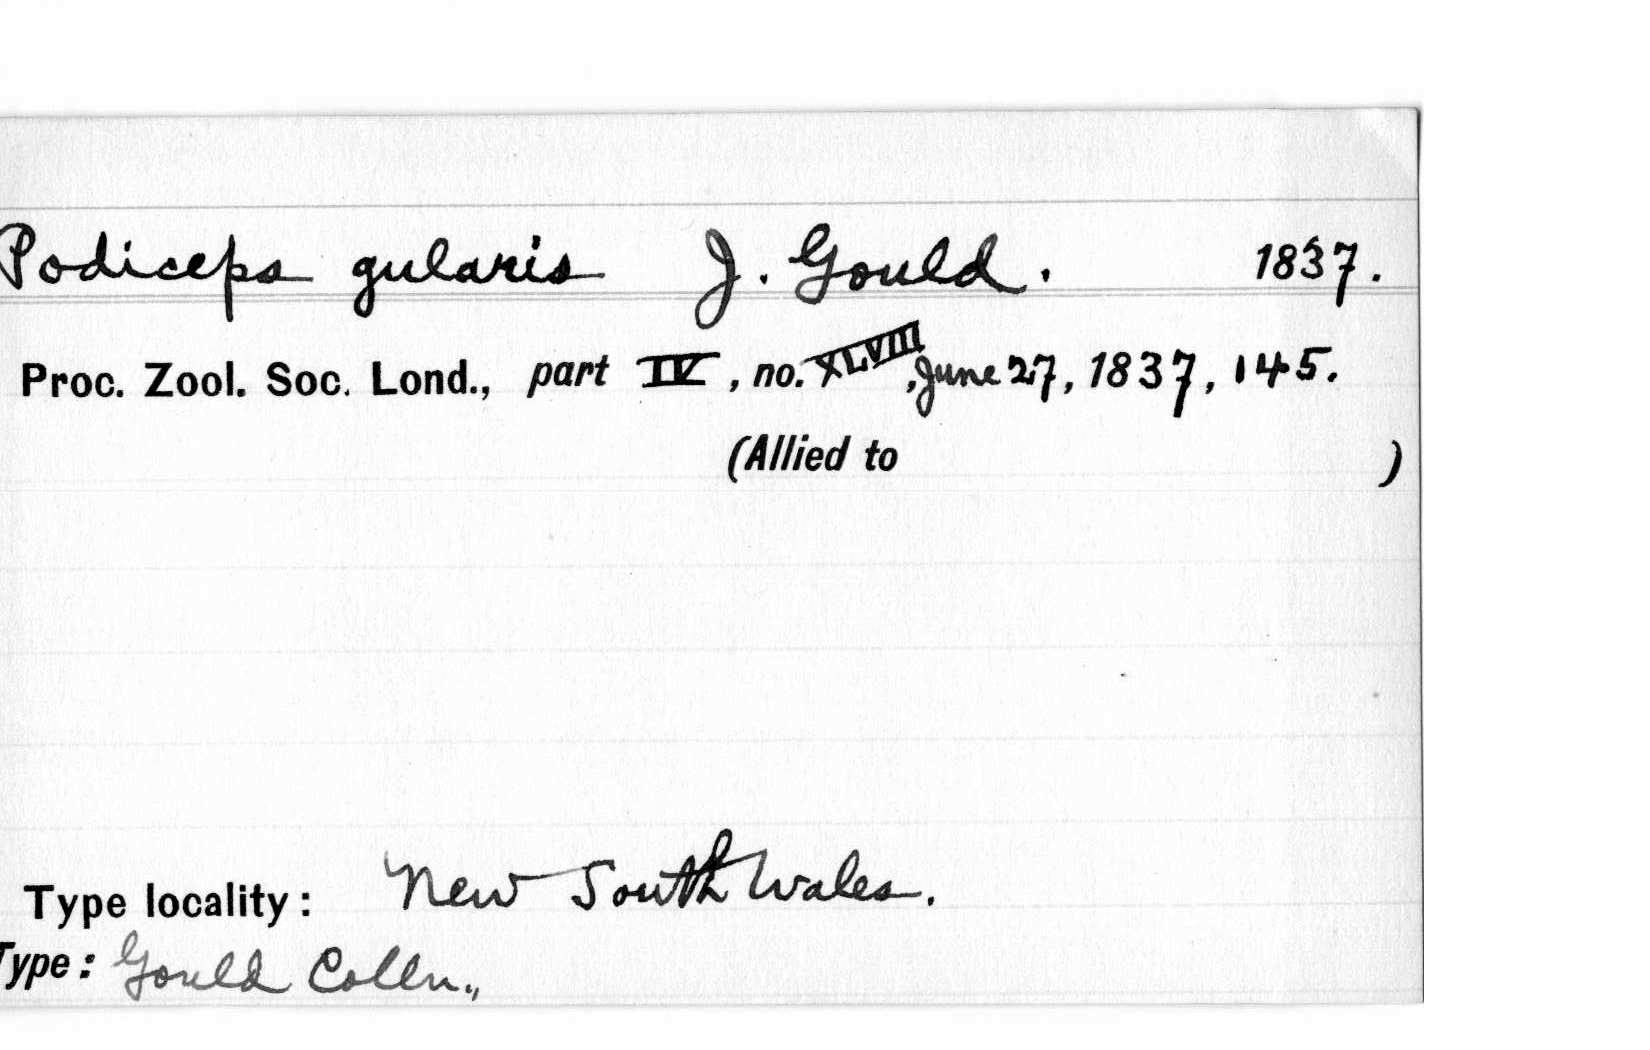 Podiceps gularis J. Gould. 1837.
Proc. Zool. Soc. Lond., part IV, no. XLVIII, June 27, 1837, 145.
(Allied to )
Type locality: New South Wales.
Type: Gould Colln.,